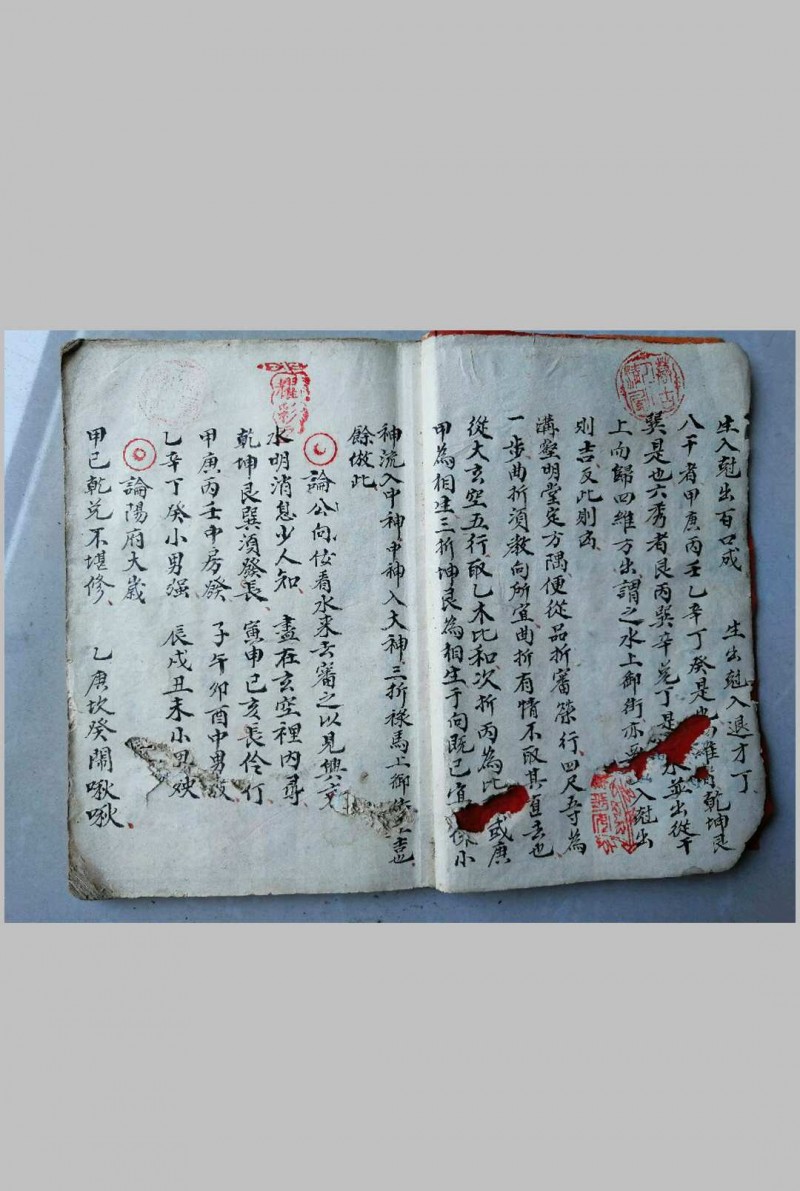 生入尅出百口成　生出尅入退才丁
八干者甲庚丙壬乙辛丁癸是也 維者乾坤艮
巽是也六秀者艮丙巽辛兑丁是 水並出從干
上向歸四維方出謂之水上御街亦 入尅出
則吉反此則凶
溝壑明堂定方隅便從品折審榮行四尺五寸為
一步曲折須教向所宜曲折有情不取其直去也
從大玄空五行取乙木比和次折丙為比 或庚
甲為相生三折坤艮為相生于向既已宜 小
神流入中神中神入大神三折祿馬上御街 吉也
餘倣此
論公向位看水來去審之以見興衰
水明消息少人知　盡在玄空裡內尋
乾坤艮巽須發長　寅申巳亥長伶仃
甲庚丙壬中房發　子午卯酉中男
乙辛丁癸小男强　辰戌丑未小男殃
論陽府大歲
甲巳乾兑不堪修　乙庚坎癸鬧啾啾
耀彩